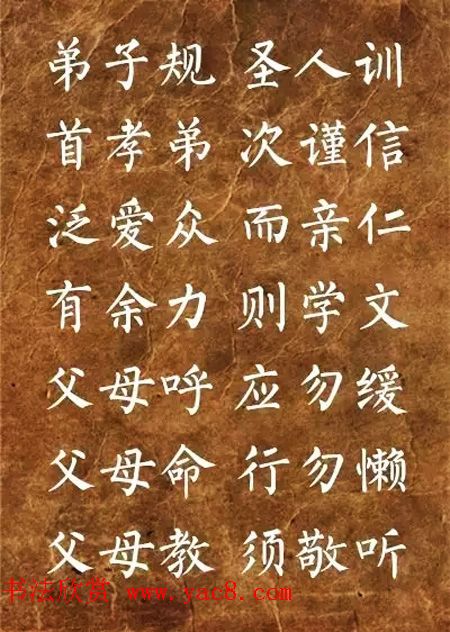 弟子规 圣人训
首孝弟 次谨信
泛爱众 而亲仁
有余力 则学文
父母呼 应勿缓
父母命 行勿懒
父母教 须敬听
书法欣赏 www.yac8.com